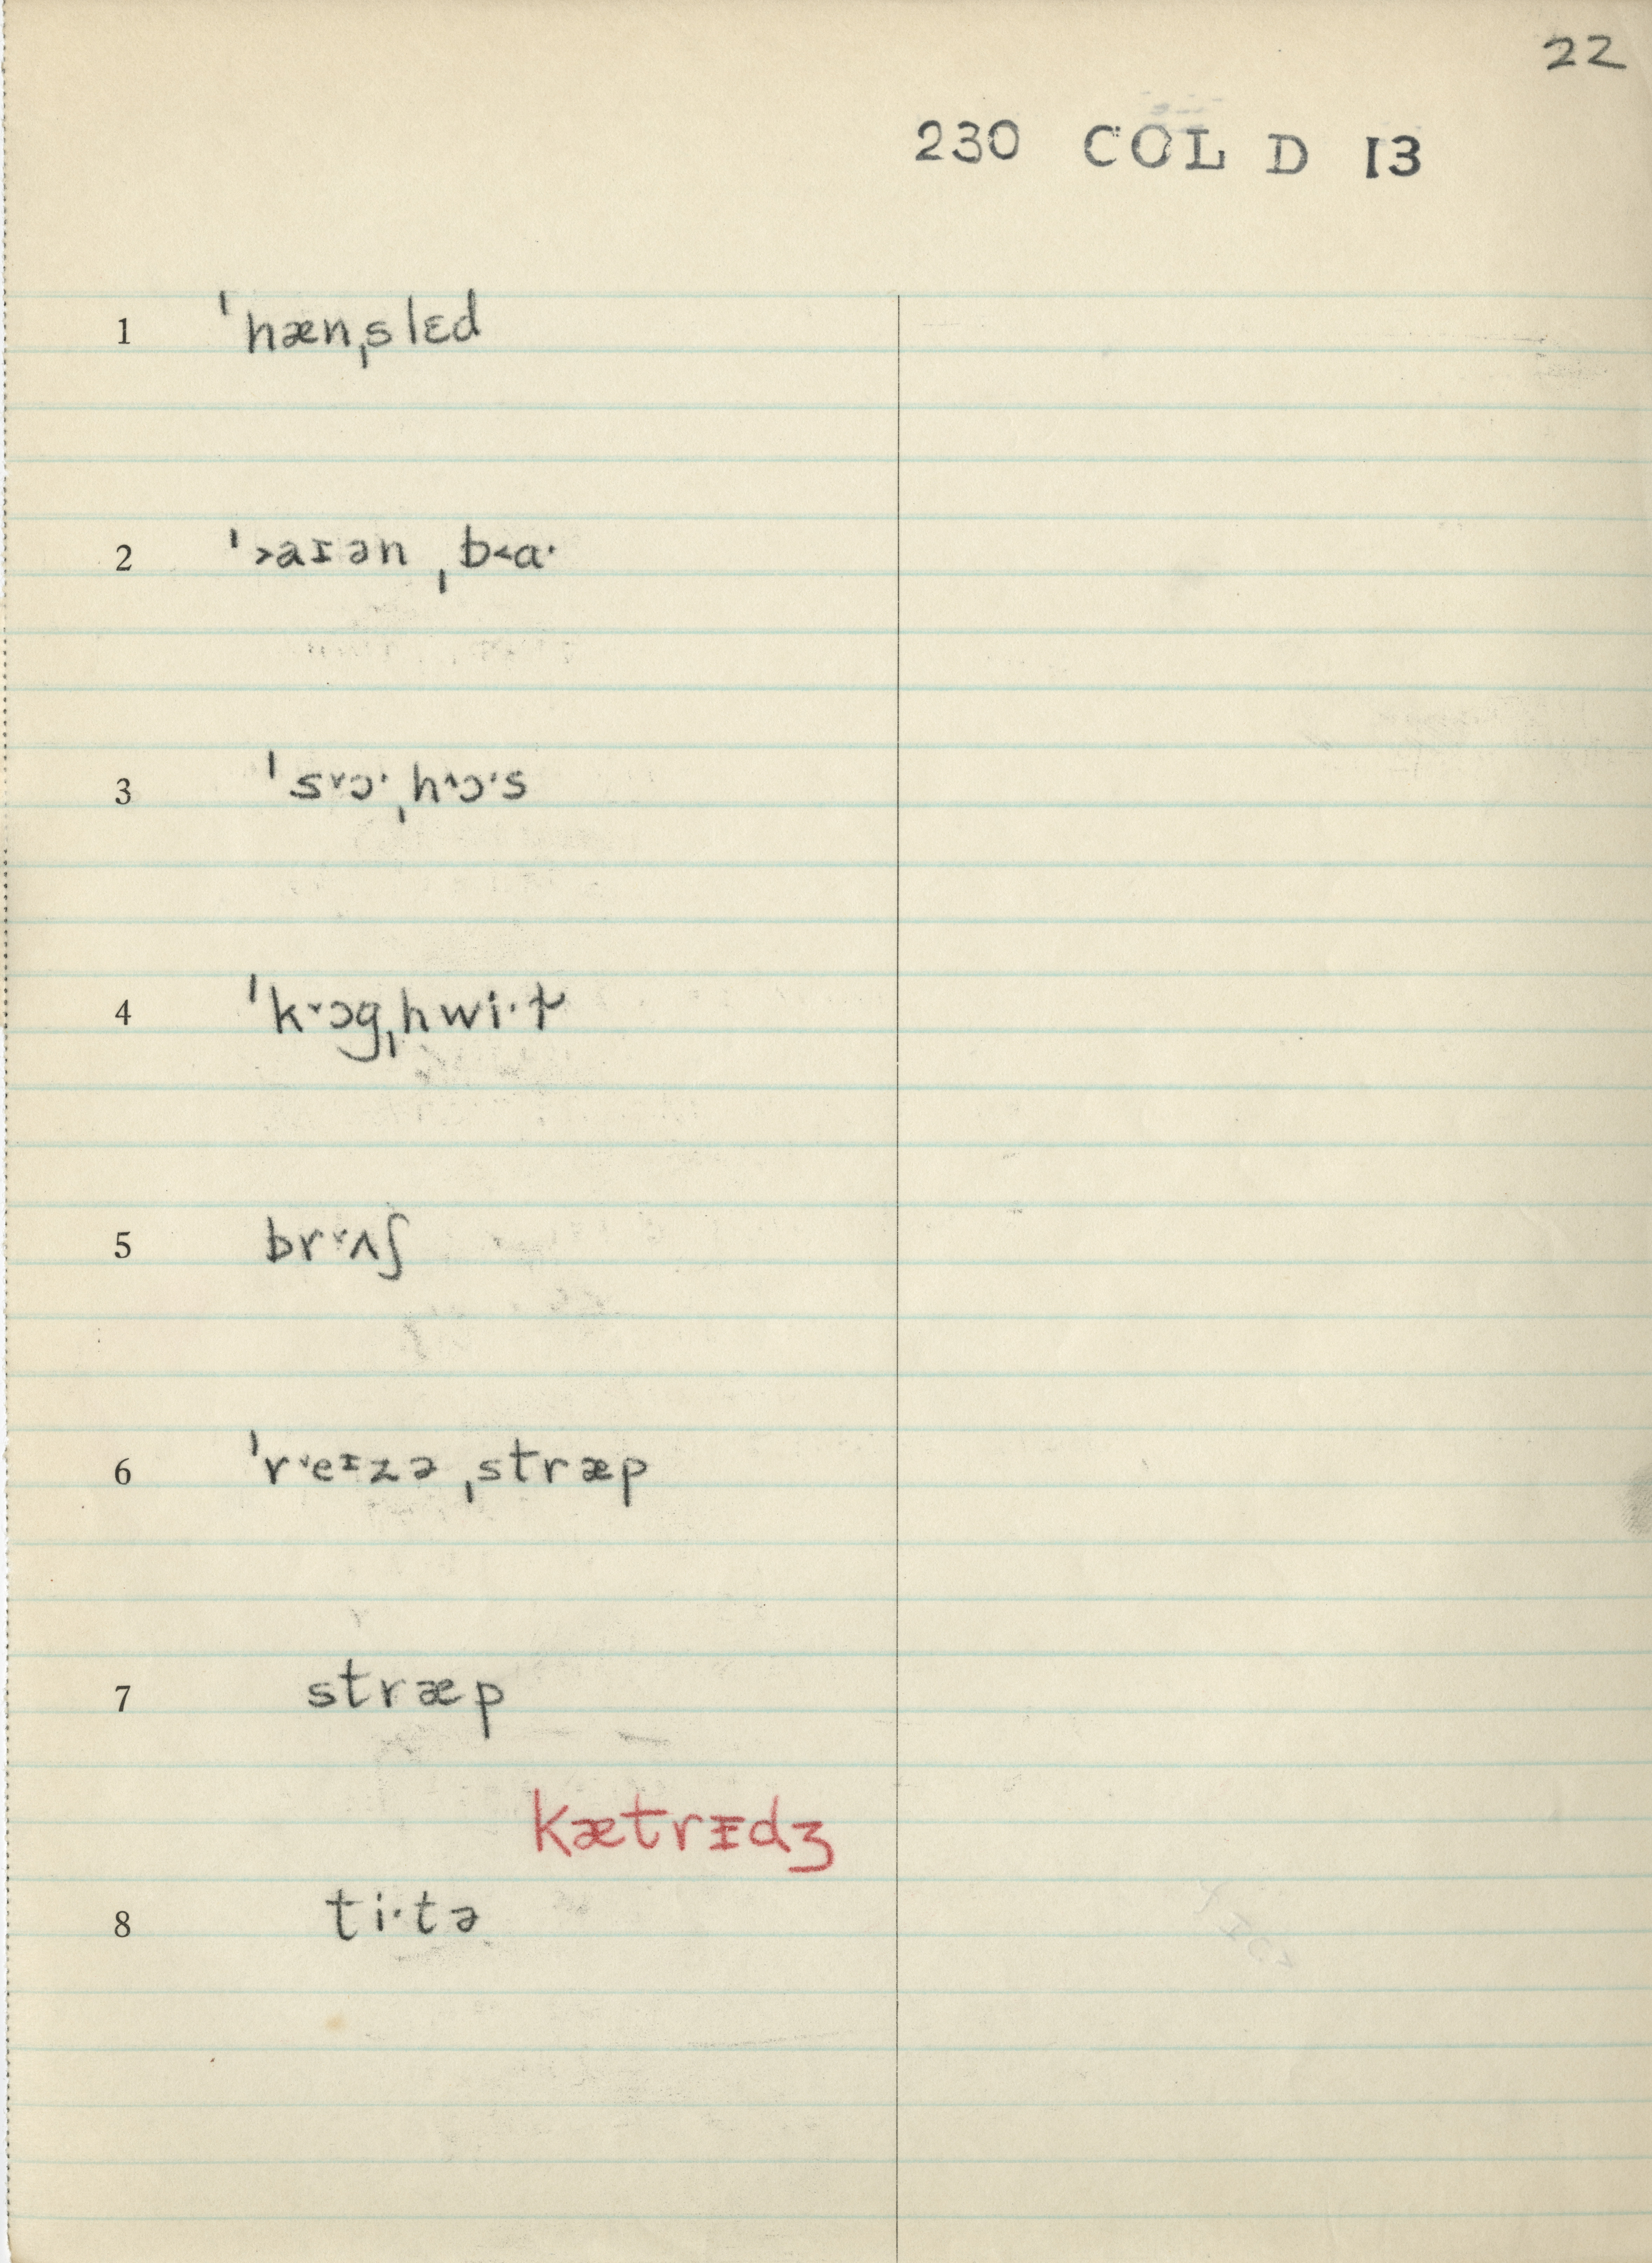 22
230 COL D 13
1 ˈhænˌslɛd
2 ˈ˃aɪən ˌb˂ɑ·
3 ˈs˅ɔ·ˌh˄ɔ·s
4 ˈk˅ɔgˌhwi·t̬
5 br˅ʌʃ
6 ˈr˅eɪzə ˌstræp
7 stræp
kætrɪdʒ
8 ti·tə